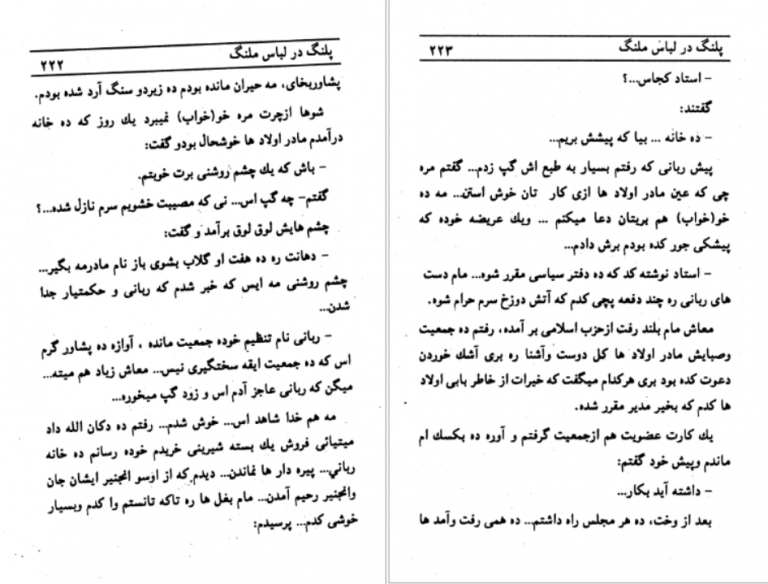 پلنگ در لباس ملنگ ۲۲۲
پشاوربخای، مه حیران مانده بودم ده زیردو سنگ آرد شده بودم.
شوها ازچرت مره خو(خواب) نمیبرد یك روز که ده خانه
درآمدم مادر اولاد ها خوشحال بودو گفت:
– باش که یك چشم روشنی برت خوبتم.
گفتم– چه گپ اس... نی که مصیبت خشویم سرم نازل شده...؟
چشم هایش لوق لوق برآمد و گفت:
– دهانت ره ده هفت او گلاب بشوی باز نام مادرمه بگیر...
چشم روشنی مه ایس که خبر شدم که ربانی و حکمتیار جدا
شدن...
– ربانی نام تنظیم خوده جمعیت مانده ، آوازه ده پشاور گرم
اس که ده جمعیت ایقه سختگیری نیس... معاش زیاد هم میته...
میگن که ربانی عاجز آدم اس و زود گپ میخوره...
مه هم خدا شاهد اس... خوش شدم... رفتم ده دکان الله داد
میتیائی فروش یك بسته شیرینی خریدم خوده رسانم ده خانه
رباني... پیره دار ها نماندن... دیدم که از اوسو انجنیر ایشان جان
وانجنیر رحیم آمدن... مام بغل ها ره تاکه تانستم وا کدم وبسیار
خوشی کدم... پرسیدم:
پلنگ در لباس ملنگ ۲۲۳
– استاد کجاس...؟
گفتند:
– ده خانه ... بیا که پیشش بریم...
پیش ربانی که رفتم بسیار به طبع اش گپ زدم... گفتم مره
چی که عین مادر اولاد ها ازی کار تان خوش استن... مه ده
خو(خواب) هم بریتان دعا میکنم ... ویك عریضه خوده که
پیشکی جور کده بودم برش دادم...
– استاد نوشته کد که ده دفتر سیاسی مقرر شوه... مام دست
های ربانی ره چند دفعه پچی کدم که آتش دوزخ سرم حرام شوه.
معاش مام بلند رفت ازحزب اسلامی بر آمده، رفتم ده جمعیت
وصبایش مادر اولاد ها کل دوست وآشنا ره بری آشك خوردن
دعوت کده بود بری هرکدام میگفت که خیرات از خاطر بابی اولاد
ها کدم که بخیر مدیر مقرر شده.
یك کارت عضویت هم ازجمعیت گرفتم و آوره ده بکسك ام
ماندم وپیش خود گفتم:
– داشته آید بکار...
بعد از وخت، ده هر مجلس راه داشتم... ده همی رفت وآمد ها